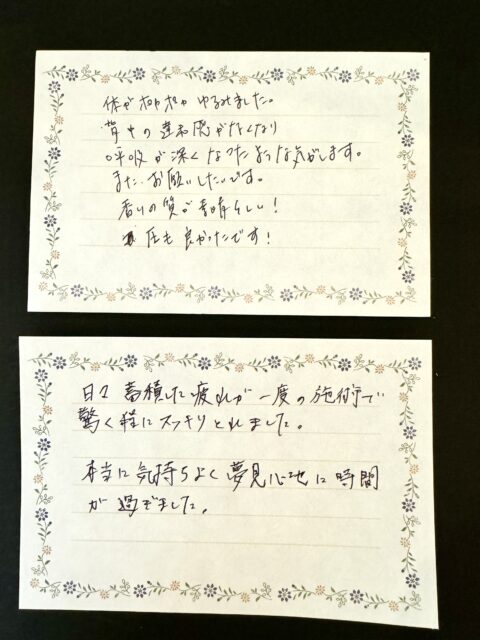 体がポカポカ ゆるみました。
背中の違和感がなくなり
呼吸が深くなったような気がします。
また、お願いしたいです。
香りの質が素晴らしい!
圧も良かったです!
日々 蓄積した疲れが一度の施術で
驚く程にスッキリとれました。
本当に気持ちよく夢見心地に時間
が過ぎました。